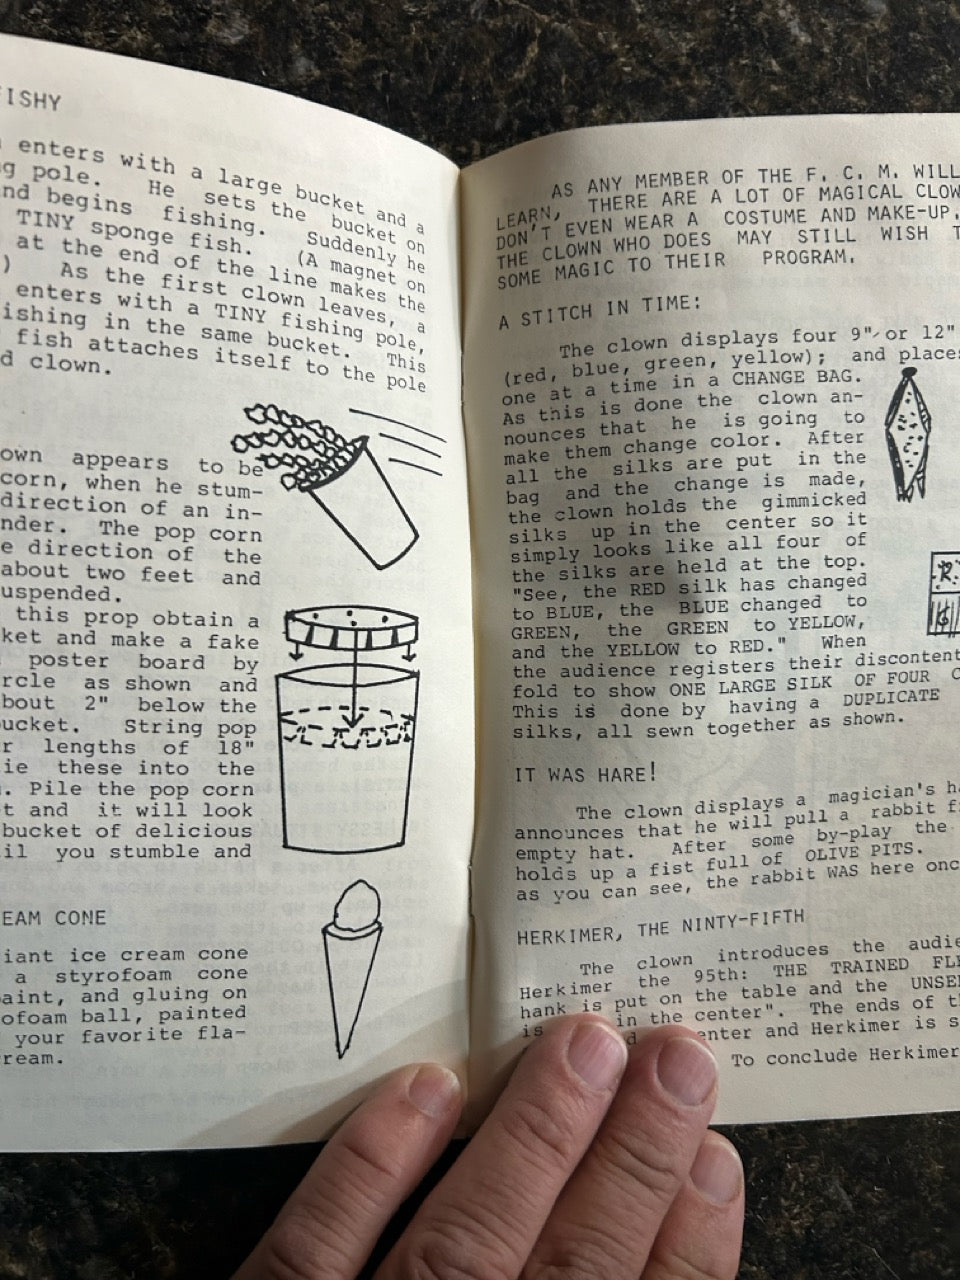 FISHY
enters with a large bucket and a
pole. He sets the bucket on
and begins fishing. Suddenly he
TINY sponge fish. (A magnet on
at the end of the line makes the
) As the first clown leaves, a
enters with a TINY fishing pole,
ishing in the same bucket. This
fish attaches itself to the pole
d clown.
own appears to be
corn, when he stum-
direction of an in-
nder. The pop corn
e direction of the
about two feet and
uspended.
this prop obtain a
ket and make a fake
poster board by
rcle as shown and
bout 2" below the
bucket. String pop
r lengths of 18"
ie these into the
. Pile the pop corn
t and it will look
bucket of delicious
il you stumble and
EAM CONE
iant ice cream cone
a styrofoam cone
aint, and gluing on
ofoam ball, painted
your favorite fla-
ream.
AS ANY MEMBER OF THE F. C. M. WILL
LEARN, THERE ARE A LOT OF MAGICAL CLOW
DON'T EVEN WEAR A COSTUME AND MAKE-UP.
THE CLOWN WHO DOES MAY STILL WISH T
SOME MAGIC TO THEIR PROGRAM.
A STITCH IN TIME:
The clown displays four 9" or 12"
(red, blue, green, yellow); and places
one at a time in a CHANGE BAG.
As this is done the clown an-
nounces that he is going to
make them change color. After
all the silks are put in the
bag and the change is made,
the clown holds the gimmicked
silks up in the center so it
simply looks like all four of
the silks are held at the top.
"See, the RED silk has changed
to BLUE, the BLUE changed to
GREEN, the GREEN to YELLOW,
and the YELLOW to RED." When
the audience registers their discontent
fold to show ONE LARGE SILK OF FOUR C
This is done by having a DUPLICATE
silks, all sewn together as shown.
R
G
IT WAS HARE!
The clown displays a magician's ha
announces that he will pull a rabbit f
empty hat. After some by-play the
holds up a fist full of OLIVE PITS.
as you can see, the rabbit WAS here onc
HERKIMER, THE NINTY-FIFTH
The clown introduces the audie
Herkimer the 95th: THE TRAINED FLE
hank is put on the table and the UNSE
is in the center". The ends of th
enter and Herkimer is s
To conclude Herkimer